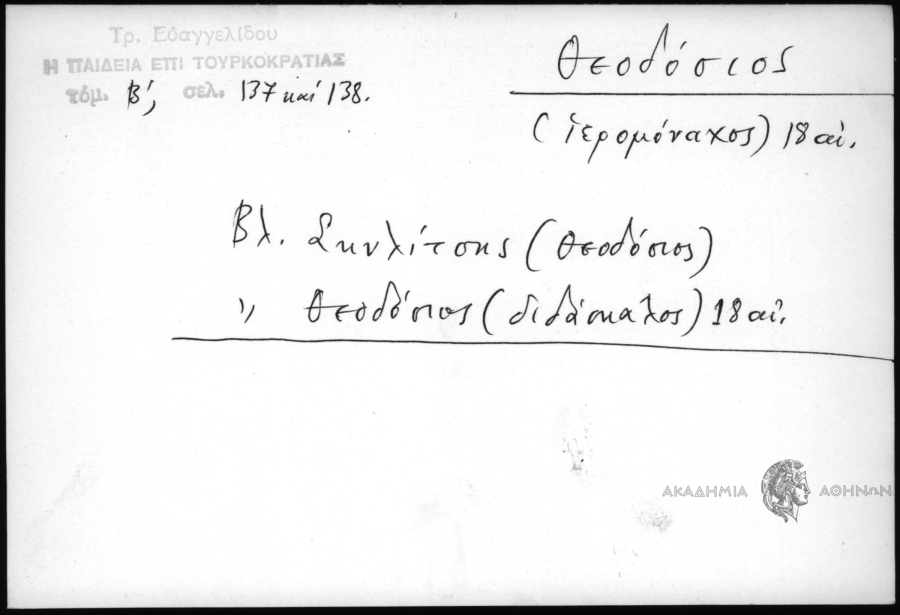 Τρ. Εὐαγγελίδου
Η ΠΑΙΔΕΙΑ ΕΠΙ ΤΟΥΡΚΟΚΡΑΤΙΑΣ
τόμ. Β', σελ. 137 καί 138.
Θεοδόσιος
(ἱερομόναχος) 18 αἰ.
Βλ. Σκυλίτσης (Θεοδόσιος)
〃 Θεοδόσιος (διδάσκαλος) 18 αἰ.
ΑΚΑΔΗΜΙΑ ΑΘΗΝΩΝ